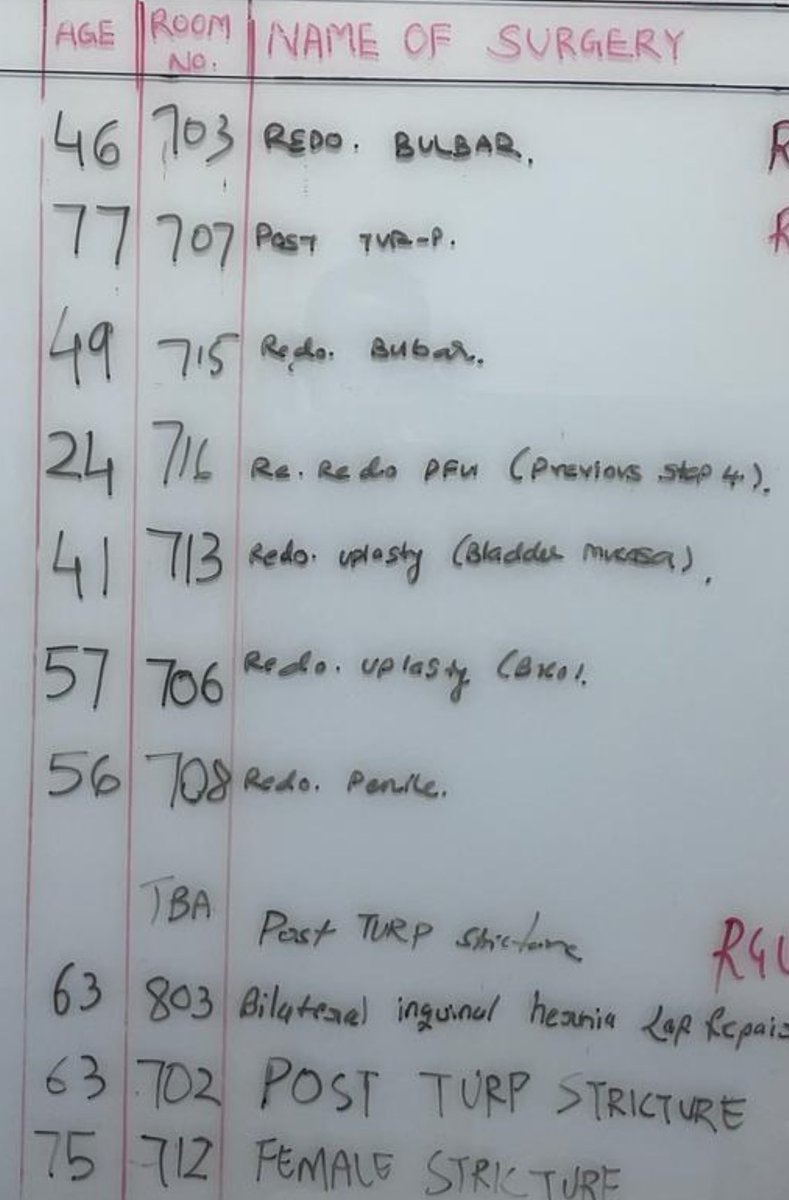 AGE ROOM NO. NAME OF SURGERY
46 703 REDO. BULBAR. R
77 707 POST TUR-P. R
49 715 Redo. Bulbar.
24 716 Re. Redo PFU (Previous step 4).
41 713 Redo. uplasty (Bladder mucosa).
57 706 Redo. uplasty (BXO).
56 708 Redo. Penile.
TBA Post TURP stricture RGU
63 803 Bilateral inguinal hernia Lap Repair
63 702 POST TURP STRICTURE
75 712 FEMALE STRICTURE